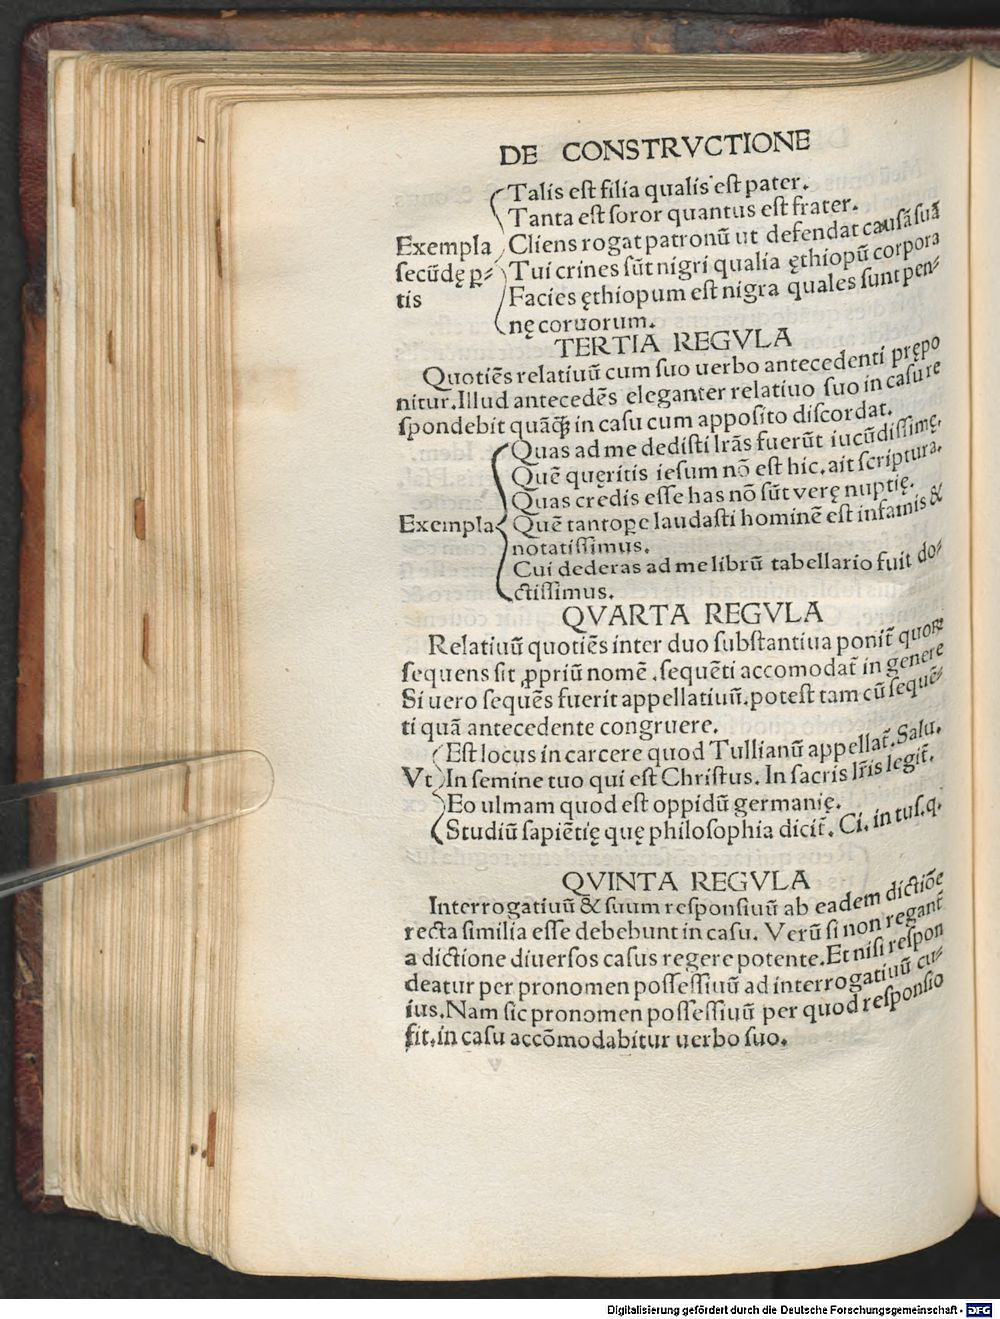 DE CONSTRVCTIONE
Talis est filia qualis est pater.
Tanta est soror quantus est frater.
Exempla Cliens rogat patronū ut defendat causā suā
secūdę ꝑ- Tui crines sūt nigri qualia ęthiopū corpora
tis Facies ęthiopum est nigra quales sunt pen-
nę coruorum.
TERTIA REGVLA
Quotiēs relatiuū cum suo uerbo antecedenti prępo
nitur. Illud antecedēs eleganter relatiuo suo in casu re
spondebit quāq̄ȝ in casu cum apposito discordat.
Quas ad me dedisti lr̄as fuerūt iucūdissimę.
Quē quęritis iesum nō est hic. ait scriptura.
Quas credis esse has nō sūt verę nuptię.
Exempla Quē tantope laudasti hominē est infamis &
notatissimus.
Cui dederas ad me librū tabellario fuit do-
ctissimus.
QVARTA REGVLA
Relatiuū quotiēs inter duo substantiua ponit̄ quoꝝ
sequens sit ꝓpriū nomē. sequēti accomodat̄ in genere
Si uero sequēs fuerit appellatiuū. potest tam cū sequē-
ti quā antecedente congruere.
Est locus in carcere quod Tullianū appellat̄. Salu.
Vt In semine tuo qui est Christus. In sacris lr̄is legit̄.
Eo ulmam quod est oppidū germanię.
Studiū sapiētię quę philosophia dicit̄. Ci. in tus. q.
QVINTA REGVLA
Interrogatiuū & suum responsiuū ab eadem dictiōe
recta similia esse debebunt in casu. Verū si non regant̄
a dictione diuersos casus regere potente. Et nisi respon
deatur per pronomen possessiuū ad interrogatiuū cu-
ius. Nam sic pronomen possessiuū per quod responsio
fit. in casu accōmodabitur uerbo suo.
Digitalisierung gefördert durch die Deutsche Forschungsgemeinschaft - DFG